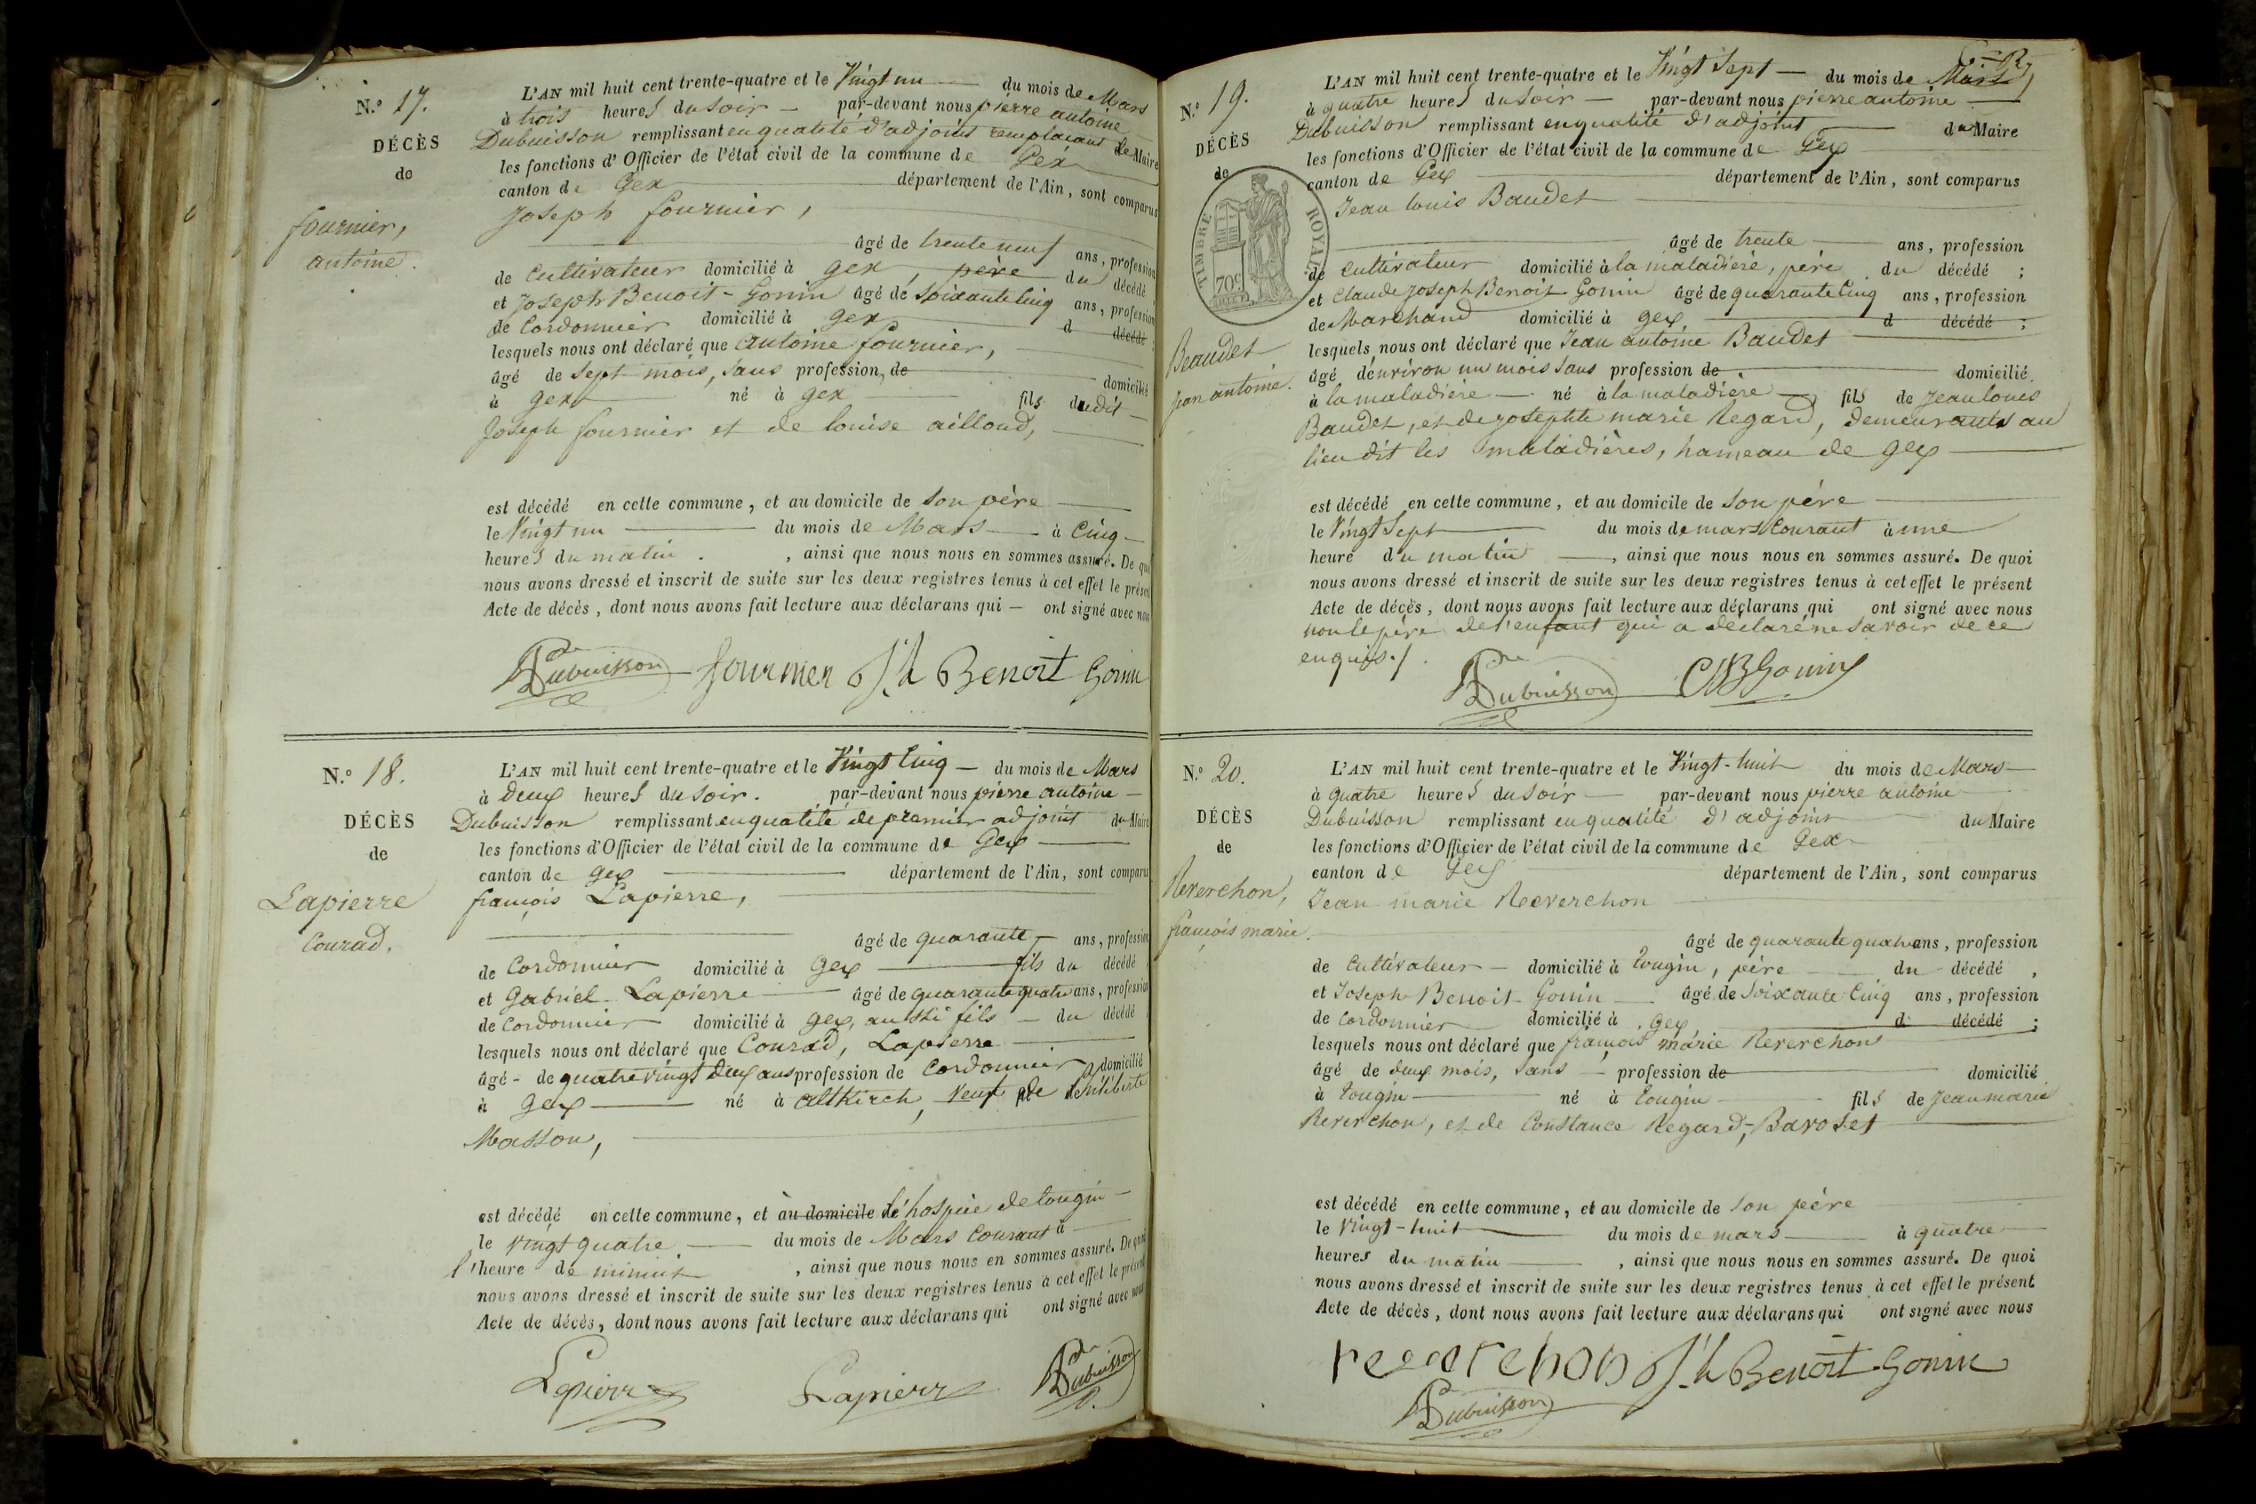 N.º 17.
DÉCÈS
de
fournier,
antoine.
L'AN mil huit cent trente-quatre et le Vingt un — du mois de Mars
à trois heures du Soir — par-devant nous pierre antoine
Dubuisson remplissant en qualité d'adjoint remplaçant le Maire
les fonctions d'Officier de l'état civil de la commune de Gex
canton de Gex département de l'Ain, sont comparus
Joseph fournier,
âgé de trente neuf ans, profession
de Cultivateur domicilié à gex, père du décédé
et Joseph Benoit-Gonin âgé de Soixante Cinq ans, profession
de Cordonnier domicilié à gex d décédé
lesquels nous ont déclaré que antoine fournier,
âgé de Sept mois, Sans profession, de domicilié
à gex né à gex fils dudit
Joseph fournier et de louise ailloud,
est décédé en cette commune, et au domicile de Son père
le Vingt un du mois de Mars à Cinq
heures du matin . , ainsi que nous nous en sommes assuré. De quoi
nous avons dressé et inscrit de suite sur les deux registres tenus à cet effet le présent
Acte de décès, dont nous avons fait lecture aux déclarans qui — ont signé avec nous
Dubuisson fournier Jh Benoit Gonin
N.º 18.
DÉCÈS
de
Lapierre
Conrad.
L'AN mil huit cent trente-quatre et le Vingt Cinq — du mois de Mars
à Deux heures du Soir. par-devant nous pierre antoine
Dubuisson remplissant en qualité de premier adjoint du Maire
les fonctions d'Officier de l'état civil de la commune de Gex
canton de gex département de l'Ain, sont comparus
françois Lapierre,
âgé de quarante — ans, profession
de Cordonnier domicilié à Gex fils du décédé
et Gabriel Lapierre âgé de quarante quatre ans, profession
de Cordonnier domicilié à gex, aussi fils — du décédé
lesquels nous ont déclaré que Conrad, Lapierre
âgé - de quatre Vingt deux ans profession de Cordonnier, domicilié
à gex né à altkirch, Veuf de
Masson,
est décédé en cette commune, et au domicile de l'hospice de tougin
le Vingt quatre du mois de Mars Courant à
l'heure de minuit , ainsi que nous nous en sommes assuré. De quoi
nous avons dressé et inscrit de suite sur les deux registres tenus à cet effet le présent
Acte de décès, dont nous avons fait lecture aux déclarans qui ont signé avec nous
Lapierre Lapierre Dubuisson
N.º 19.
DÉCÈS
de
TIMBRE ROYAL
70c
Beaudet
jean antoine.
L'AN mil huit cent trente-quatre et le Vingt Sept — du mois de Mars
à quatre heures du Soir — par-devant nous pierre antoine
Dubuisson remplissant en qualité d'adjoint du Maire
les fonctions d'Officier de l'état civil de la commune de Gex
canton de Gex département de l'Ain, sont comparus
Jean louis Baudet
âgé de trente ans, profession
de Cultivateur domicilié à la maladière, père du décédé ;
et Claude Joseph Benoit Gonin âgé de quarante Cinq ans, profession
de Marchand domicilié à gex d décédé ;
lesquels nous ont déclaré que Jean antoine Baudet
âgé d'environ un mois Sans profession de domicilié
à la maladière né à la maladière fils de Jean louis
Baudet, et de josephte marie Regard, demeurants au
lieu dit les maladières, hameau de gex
est décédé en cette commune, et au domicile de Son père
le Vingt Sept du mois de mars Courant à une
heure du matin , ainsi que nous nous en sommes assuré. De quoi
nous avons dressé et inscrit de suite sur les deux registres tenus à cet effet le présent
Acte de décès, dont nous avons fait lecture aux déclarans qui ont signé avec nous
non le père de l'enfant qui a déclaré ne Savoir de ce
enquis./.
Dubuisson CJB Gonin
N.º 20.
DÉCÈS
de
Reverchon,
françois marie.
L'AN mil huit cent trente-quatre et le Vingt-huit du mois de Mars
à quatre heures du Soir par-devant nous pierre antoine
Dubuisson remplissant en qualité d'adjoint du Maire
les fonctions d'Officier de l'état civil de la commune de Gex
canton de Gex département de l'Ain, sont comparus
Jean marie Reverchon
âgé de quarante quatre ans, profession
de Cultivateur domicilié à tougin, père du décédé ,
et Joseph Benoit Gonin âgé de Soixante Cinq ans, profession
de Cordonnier domicilié à gex d décédé ;
lesquels nous ont déclaré que françois marie Reverchon
âgé de deux mois, Sans profession de domicilié
à tougin né à tougin fils de Jean marie
Reverchon, et de Constance Regard, Baroset
est décédé en cette commune, et au domicile de Son père
le Vingt-huit du mois de mars à quatre
heures du matin , ainsi que nous nous en sommes assuré. De quoi
nous avons dressé et inscrit de suite sur les deux registres tenus à cet effet le présent
Acte de décès, dont nous avons fait lecture aux déclarans qui ont signé avec nous
reverchon Jh Benoit Gonin
Dubuisson